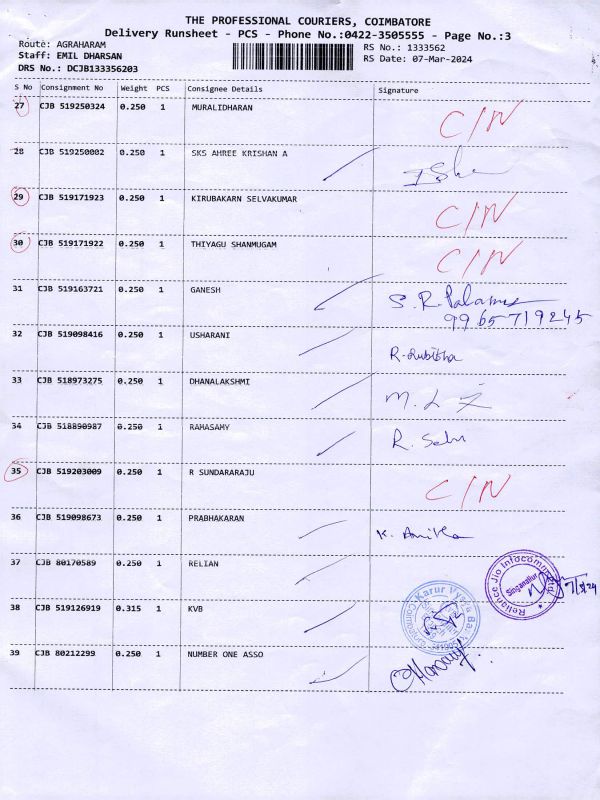 THE PROFESSIONAL COURIERS, COIMBATORE
Delivery Runsheet - PCS - Phone No.:0422-3505555 - Page No.:3
Route: AGRAHARAM
RS No.: 1333562
Staff: EMIL DHARSAN
RS Date: 07-Mar-2024
DRS No.: DCJB133356203
S No Consignment No Weight PCS Consignee Details Signature
27 CJB 519250324 0.250 1 MURALIDHARAN C/N
28 CJB 519250002 0.250 1 SKS AHREE KRISHAN A
29 CJB 519171923 0.250 1 KIRUBAKARN SELVAKUMAR C/N
30 CJB 519171922 0.250 1 THIYAGU SHANMUGAM C/N
31 CJB 519163721 0.250 1 GANESH S.R.
9965719245
32 CJB 519098416 0.250 1 USHARANI R.
33 CJB 518973275 0.250 1 DHANALAKSHMI M.L
34 CJB 518890987 0.250 1 RAHASAMY R.
35 CJB 519203009 0.250 1 R SUNDARARAJU C/N
36 CJB 519098673 0.250 1 PRABHAKARAN K. Anitha
37 CJB 80170589 0.250 1 RELIAN Reliance Jio Infocomm Ltd. Singanallur 7/3/24
38 CJB 519126919 0.315 1 KVB Karur Vysya Bank
39 CJB 80212299 0.250 1 NUMBER ONE ASSO